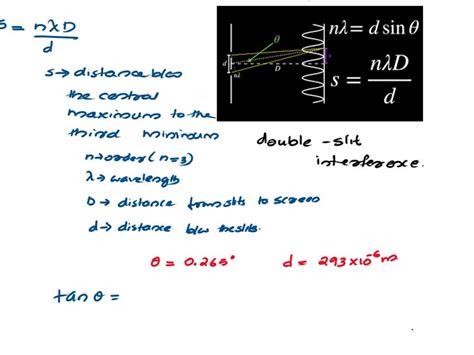 s = nλD / d
s → distance b/w
the central
maximum to the
third minimum
n → order (n=3)
λ → wavelength
D → distance from slits to screen
d → distance b/w the slits.
θ
d
nλ
D
s
nλ = d sin θ
s = nλD / d
double - slit
interference.
θ = 0.265° d = 293×10⁻⁶m
tan θ =